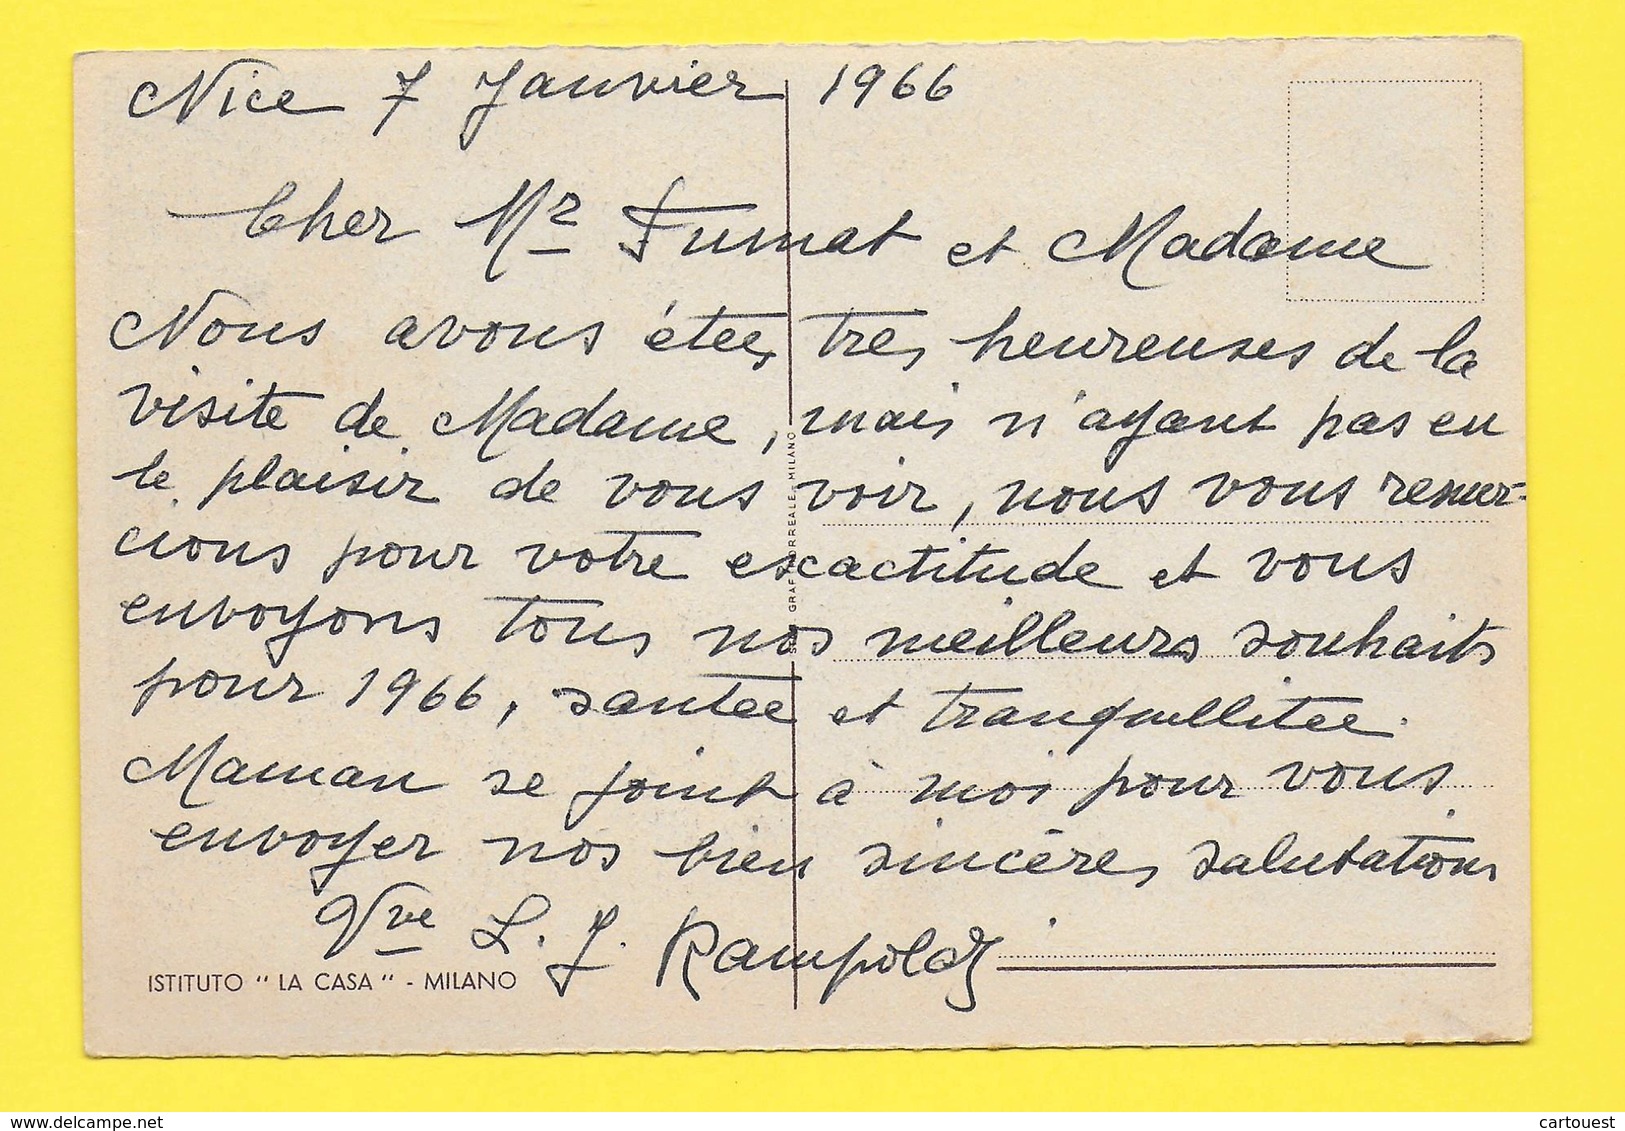 Nice 7 Janvier 1966
Cher Mr Fumat et Madame
Nous avons étées très heureuses de la
visite de Madame, mais n'ayant pas eu
le plaisir de vous voir, nous vous remer-
cions pour votre excactitude et vous
envoyons tous nos meilleurs souhaits
pour 1966, santée et tranquillitée.
Maman se joint à moi pour vous
envoyer nos bien sincères salutations
Vve L. J. Rampoldi
ISTITUTO " LA CASA " - MILANO
GRAF. TORREALE - MILANO
cartouest